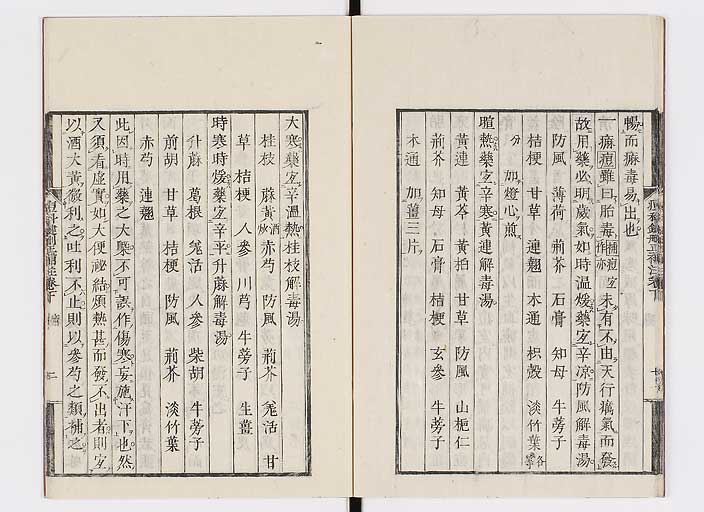 暢而痳毒易出也
一痳痘雖曰胎毒未有不由天行癘氣而發
故用藥必明歲氣如時温煖藥宜辛凉防風解毒湯
防風 薄荷 荊芥 石膏 知母 牛蒡子
桔梗 甘草 連翹 木通 枳殼 淡竹葉
加燈心煎
暄熱藥宜辛寒黃連解毒湯
黃連 黃芩 黃柏 甘草 防風 山梔仁
荊芥 知母 石膏 桔梗 玄參 牛蒡子
木通 加薑三片
大寒藥宜辛溫熱桂枝解毒湯
桂枝 麻黃酒 赤芍 防風 荊芥 羗活 甘
草 桔梗 人參 川芎 牛蒡子 生薑
時寒時煖藥宜辛平升麻解毒湯
升麻 葛根 羗活 人參 柴胡 牛蒡子
前胡 甘草 桔梗 防風 荊芥 淡竹葉
赤芍 連翹
此因時用藥之大槩不可誤作傷寒妄施汗下也然
又須看虛實如大便祕結煩熱甚而發不出者則宜
以酒大黃微利之吐利不止則以參芍之類補之